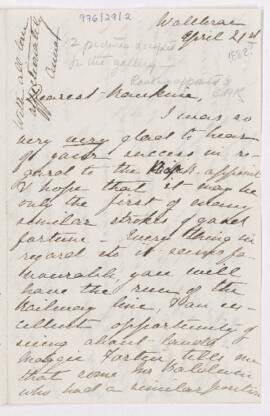 976/29/2
Wallerae
April 21st
1882?
2 pictures accepted
for the gallery
Railway appoint's
CPR
With all love
affectionately
Annat
Dearest Frankine,
I was so
very very glad to hear
of your success in re-
gard to the R appoint
I hope that it may be
only the first of many
similar strokes of good
fortune - Every thing in
regard to it seems fa-
vourable, you will
have the run of the
Railway line, & an ex-
cellent opportunity of
seeing about lands
Maggie tells me
that some Mr Baldwin
who had a similar position